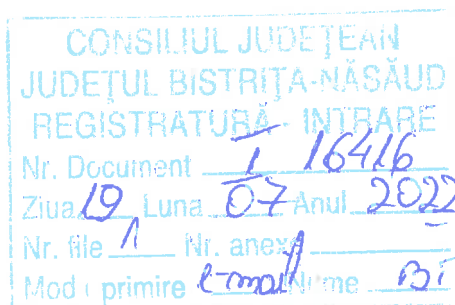 CONSILIUL JUDEȚEAN
JUDEȚUL BISTRIȚA-NĂSĂUD
REGISTRATURĂ - INTRARE
Nr. Document I 16416
Ziua 19 Luna 07 Anul 2022
Nr. file 1 Nr. anexe
Mod primire e-mail Nume